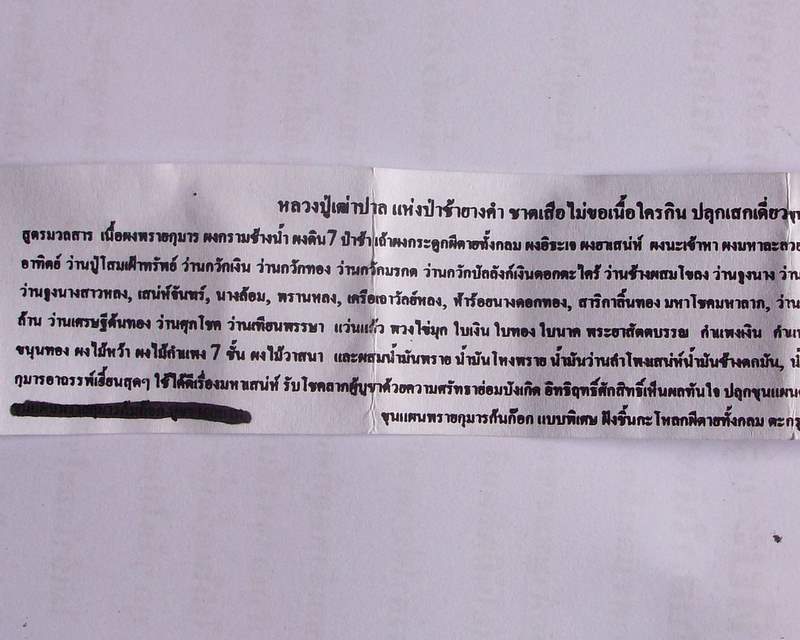 หลวงปู่เฒ่าปาล แห่งป่าช้ายางคำ ชาดเสือไม่ขอเนื้อใครกิน ปลุกเสกเดี่ยว
สูตรมวลสาร เนื้อผงพรายกุมาร ผงกรามช้างน้ำ ผงดิน7 ป่าช้า เถ้าผงกระดูกผีตายทั้งกลม ผงอิธะเจ ผงยาเสน่ห์ ผงนะเข้าหา ผงมหาละลวย
อาทิตย์ ว่านปู่โสมเฝ้าทรัพย์ ว่านกวักเงิน ว่านกวักทอง ว่านกวักมรกต ว่านกวักบัลลังก์เงินดอกตะไคร้ ว่านช้างผสมโขลง ว่านจูงนาง ว่าน
ว่านจูงนางสาวหลง, เสน่ห์จันทร์, นางล้อม, พรานหลง, เครือเถาวัลย์หลง, ฟ้าร้อยนางดอกทอง, สาริกาลิ้นทอง มหาโชคมหาลาภ, ว่าน
ล้าน ว่านเศรษฐีต้นทอง ว่านศุภโชค ว่านเทียนพรรษา แว่นแก้ว พวงไข่มุก ใบเงิน ใบทอง ใบนาค พระยาสัตตบรรณ กำแพงเงิน
ขนุนทอง ผงไม้หว้า ผงไม้กำแพง 7 ชั้น ผงไม้วาสนา และผสมน้ำมันพราย น้ำมันโหงพราย น้ำมันว่านสำโพงเสน่ห์น้ำมันช้างตกมัน,
กุมารอาถรรพ์เฮี้ยนสุดๆ ใช้ได้ดีเรื่องมหาเสน่ห์ รับโชคลาภผู้บูชาด้วยความศรัทธาย่อมบังเกิด อิทธิฤทธิ์ศักสิทธิ์เห็นผลทันใจ ปลุกขุนแผน
ขุนแผนพรายกุมารก้นก๊อก แบบพิเศษ ฝังชิ้นกะโหลกผีตายทั้งกลม